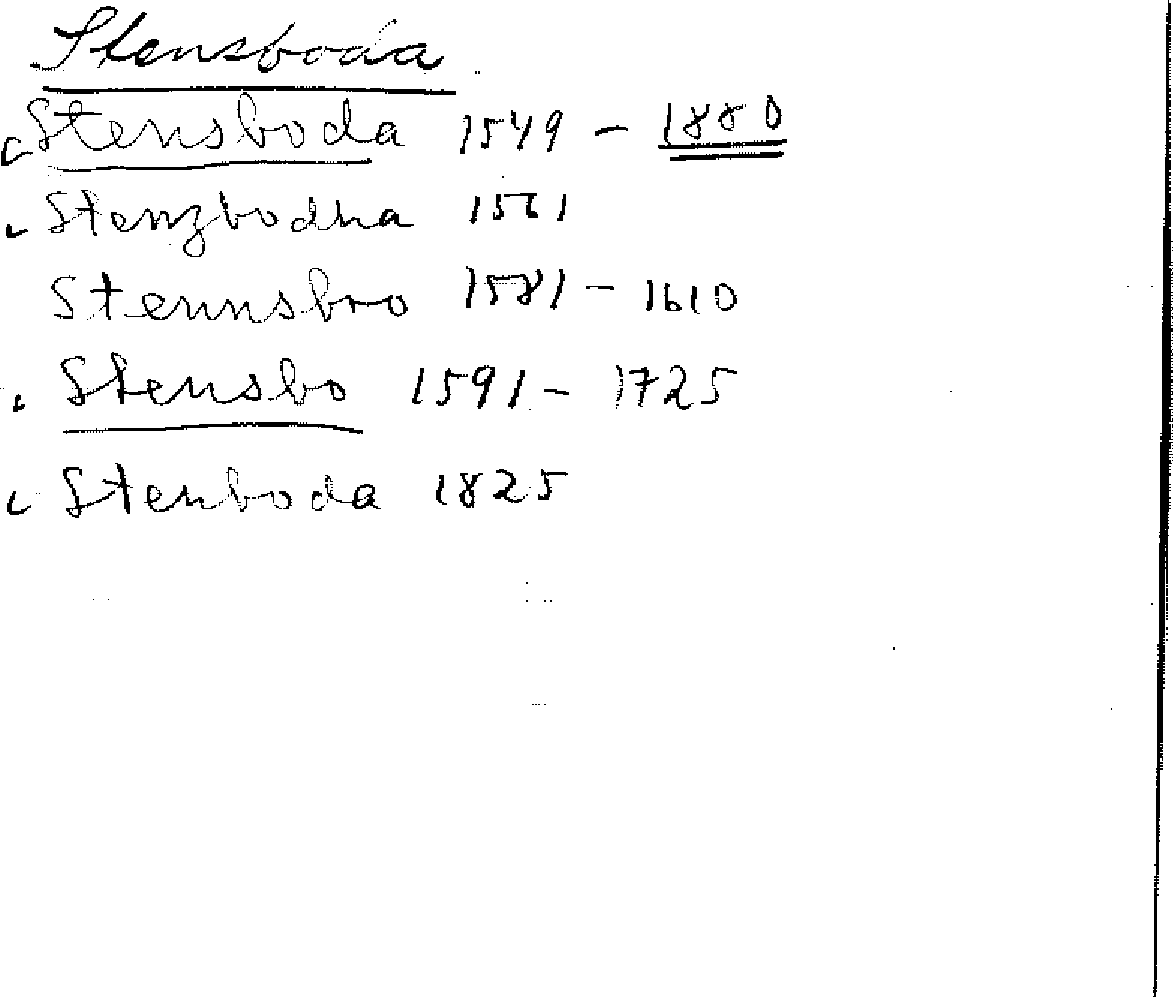 Stensboda
Stensboda 1549 - 1880
Stenzbodha 1561
Stennsbro 1581 - 1610
Stensbo 1591 - 1725
Stenboda 1825